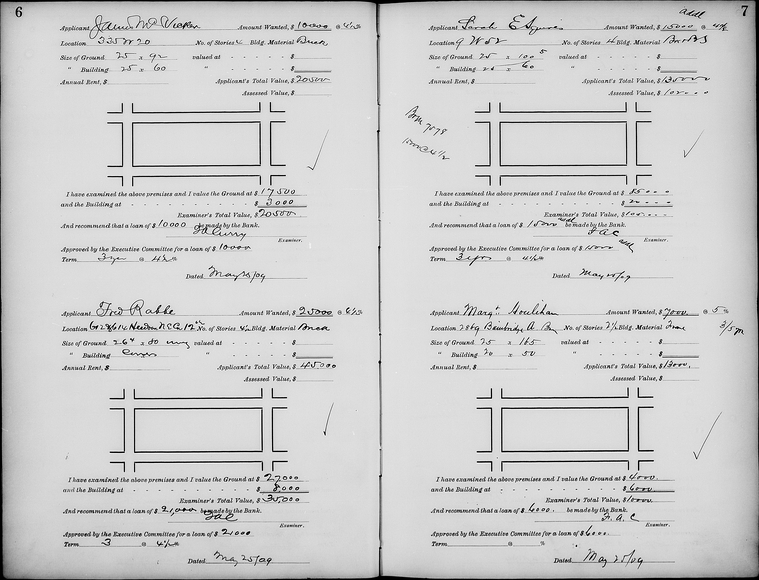 6
Applicant James McVicker Amount Wanted, $ 10000 @ 4½%
Location 335 W 20 No. of Stories 4 Bldg. Material Brick
Size of Ground 25 x 92 valued at - - - - - $
" Building 25 x 60 " - - - - - $
Annual Rent, $ Applicant's Total Value, $ 20500
Assessed Value, $
I have examined the above premises and I value the Ground at $ 17500
and the Building at - - - - - $ 3000
Examiner's Total Value, $ 20500
And recommend that a loan of $ 10000 be made by the Bank.
Examiner.
Approved by the Executive Committee for a loan of $ 10000
Term 3 yrs @ 4½%
Dated May 25/09
Applicant Fred Rabbe Amount Wanted, $ 25000 @ 4½%
Location 612 & 614 Hudson N.E.C. 12th No. of Stories Bldg. Material Brick
Size of Ground 26 x 80 valued at - - - - - $
" Building Covers " - - - - - $
Annual Rent, $ Applicant's Total Value, $ 45000
Assessed Value, $
I have examined the above premises and I value the Ground at $ 27000
and the Building at - - - - - $ 8000
Examiner's Total Value, $ 35000
And recommend that a loan of $ 21,000 be made by the Bank.
Examiner.
Approved by the Executive Committee for a loan of $ 21000
Term 3 @ 4½%
Dated May 25/09
7
addl
Applicant Sarah E Squires Amount Wanted, $ 15000 @ 4½%
Location 9 W 52 No. of Stories 4 Bldg. Material
Size of Ground 25 x 100 5 valued at - - - - - $
" Building 25 x 60 " - - - - - $
Annual Rent, $ Applicant's Total Value, $ 130000
Assessed Value, $
7078
I have examined the above premises and I value the Ground at $ 85000
and the Building at - - - - - $
Examiner's Total Value, $
And recommend that a loan of $ 15000 addl be made by the Bank.
F.A.C
Examiner.
Approved by the Executive Committee for a loan of $ 15000 addl
Term 3 yrs @ 4½%
Dated May 25/09
Applicant Margt. Houlihan Amount Wanted, $ 7000. @ 5 %
Location 2869 Bainbridge A. Bx No. of Stories 2½ Bldg. Material Frame 3/5 pm
Size of Ground 25 x 165 valued at - - - - - $
" Building 20 x 50 " - - - - - $
Annual Rent, $ Applicant's Total Value, $ 13000.
Assessed Value, $
I have examined the above premises and I value the Ground at $ 4000.
and the Building at - - - - - $ 6000.
Examiner's Total Value, $ 10000.
And recommend that a loan of $ 6000. be made by the Bank.
F.A.C
Examiner.
Approved by the Executive Committee for a loan of $ 6000.
Term @ %
Dated May 25/09